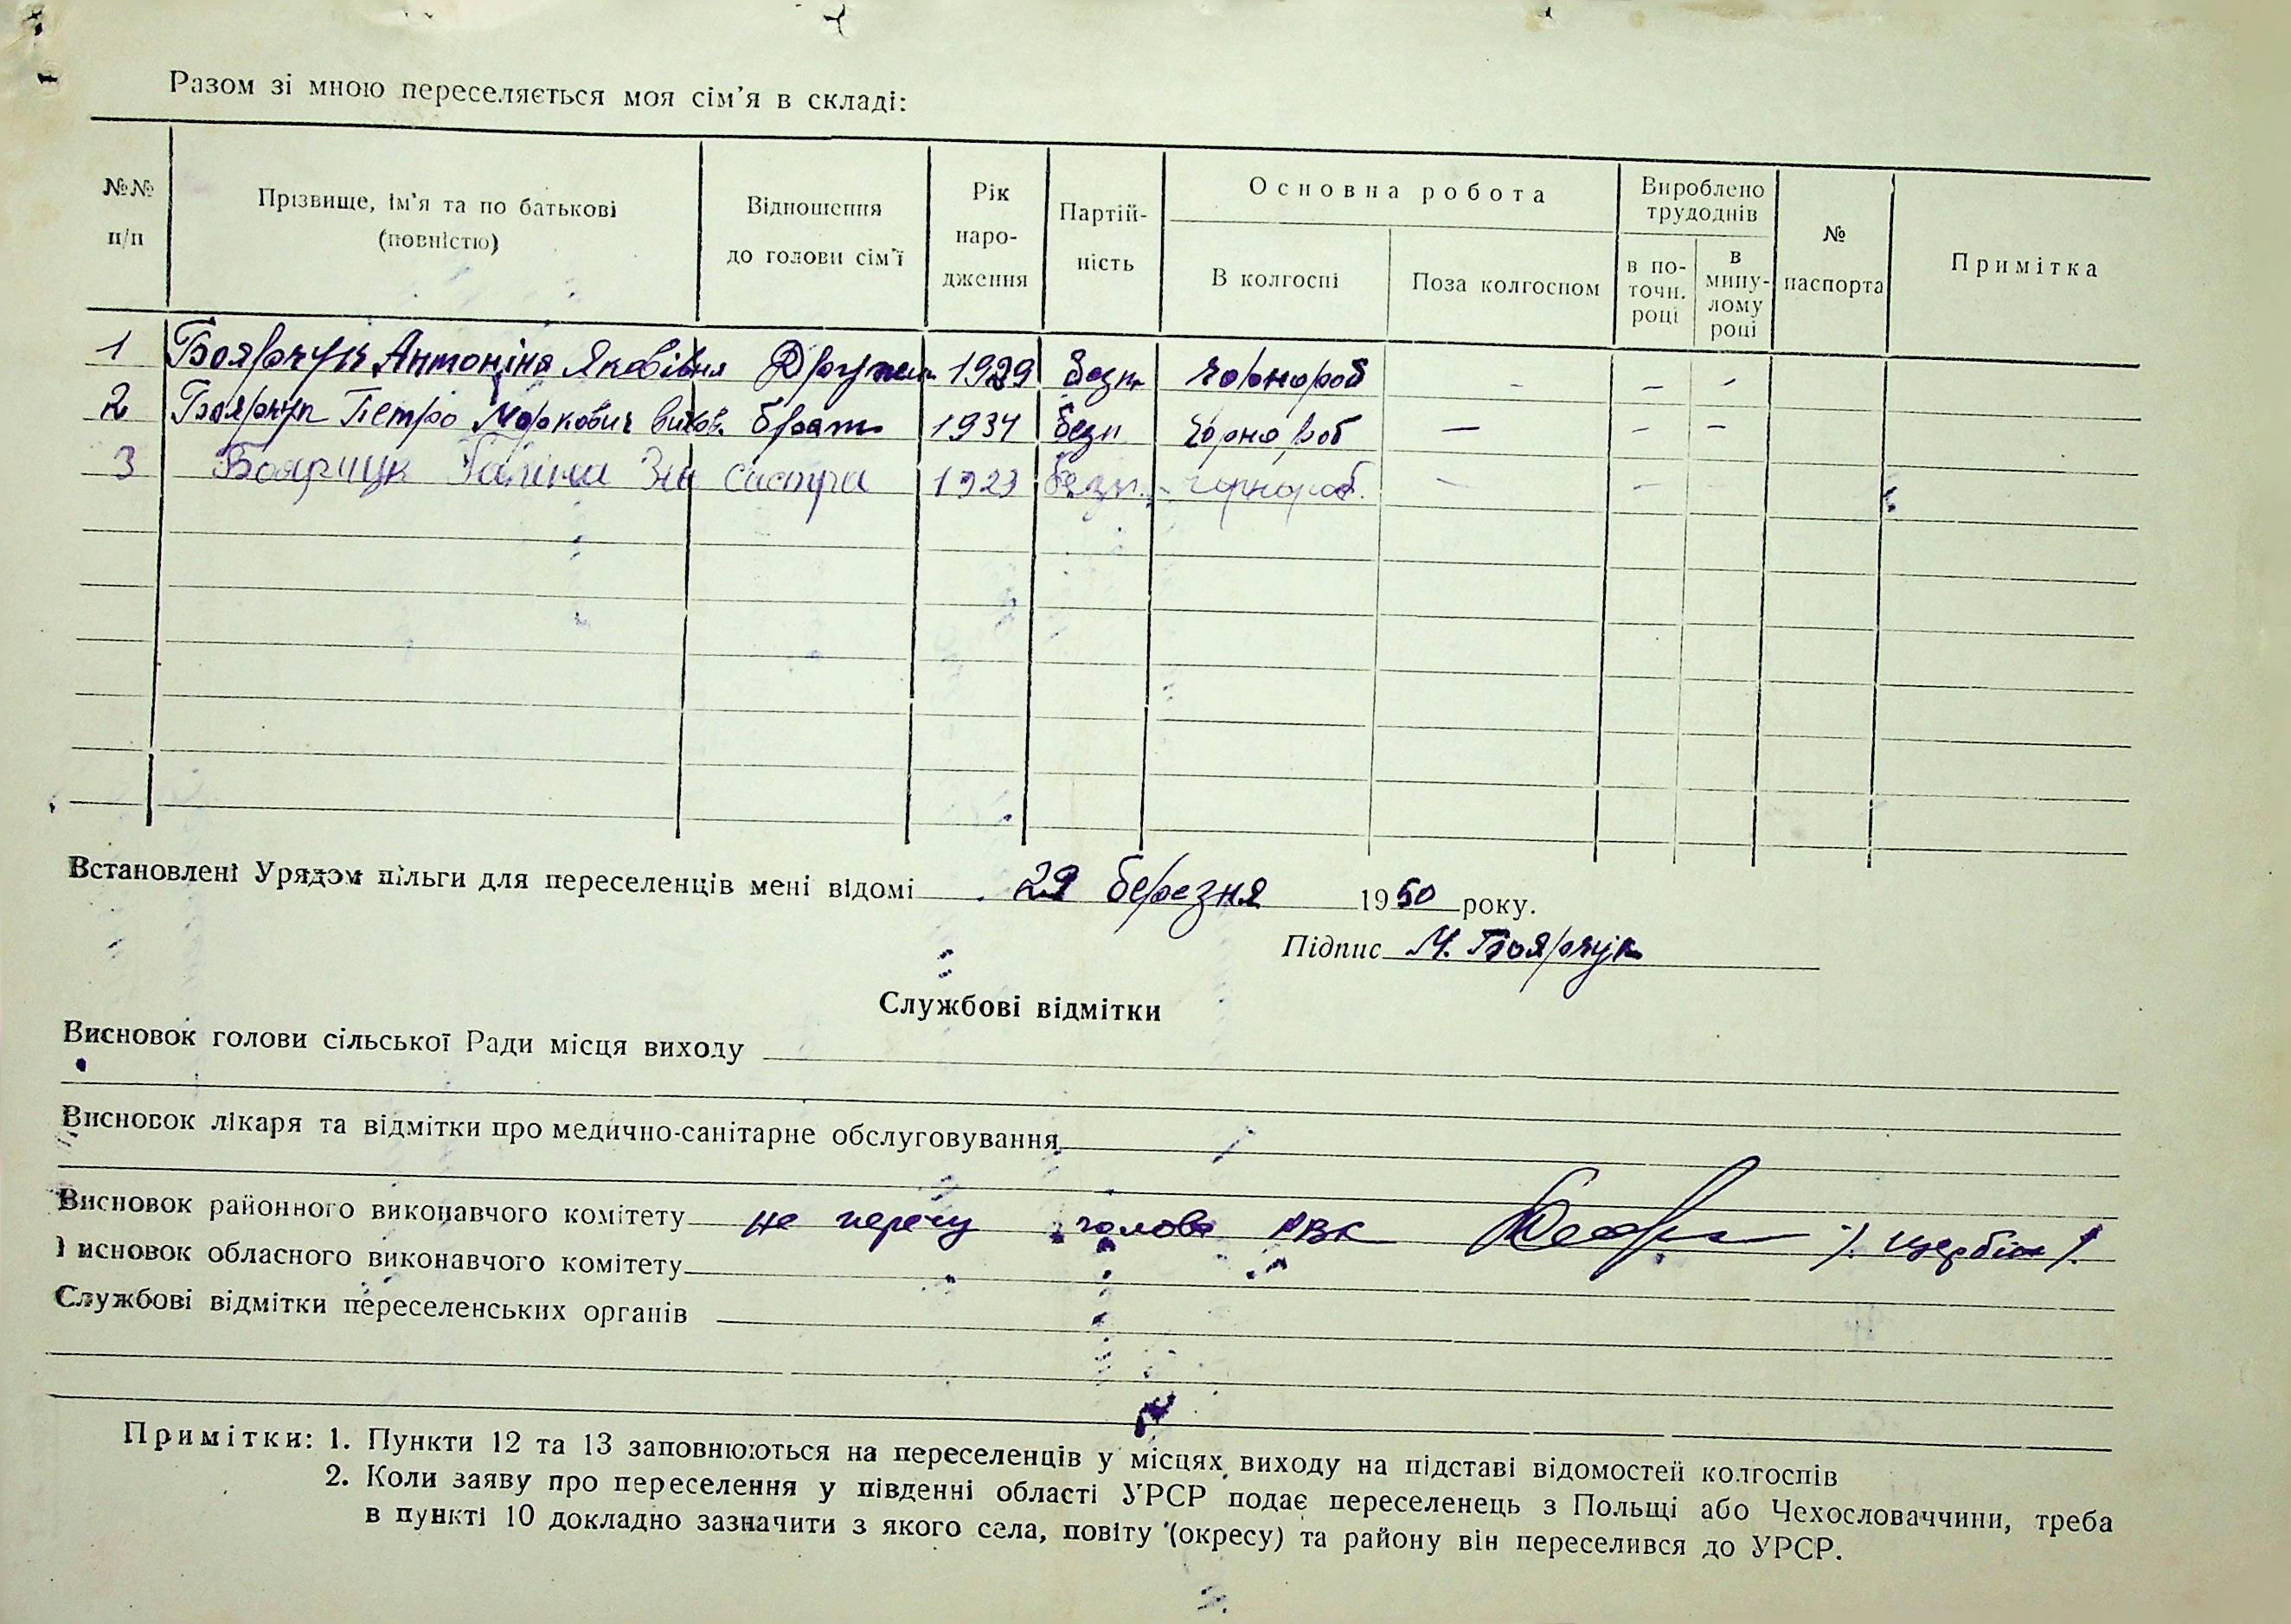 Разом зі мною переселяється моя сім'я в складі:
№№ п/п
Прізвище, ім'я та по батькові (повністю)
Відношення до голови сім'ї
Рік народження
Партійність
Основна робота
В колгоспі
Поза колгоспом
Вироблено трудоднів
в поточн. році
в минулому році
№ паспорта
Примітка
1 Боярчук Антоніна Яковівна Дружина 1929 безп. чорнороб – – –
2 Боярчук Петро Маркович брат 1934 безп чорнороб — – –
3 Боярчук Галина сестра 1923 безп. чорнороб. – – –
Встановлені Урядом пільги для переселенців мені відомі 29 березня 1950 року.
Підпис М. Боярчук
Службові відмітки
Висновок голови сільської Ради місця виходу
Висновок лікаря та відмітки про медично-санітарне обслуговування
Висновок районного виконавчого комітету не перечу голова РВК /Щербін/.
Висновок обласного виконавчого комітету
Службові відмітки переселенських органів
Примітки: 1. Пункти 12 та 13 заповнюються на переселенців у місцях виходу на підставі відомостей колгоспів
2. Коли заяву про переселення у південні області УРСР подає переселенець з Польщі або Чехословаччини, треба
в пункті 10 докладно зазначити з якого села, повіту (окресу) та району він переселився до УРСР.